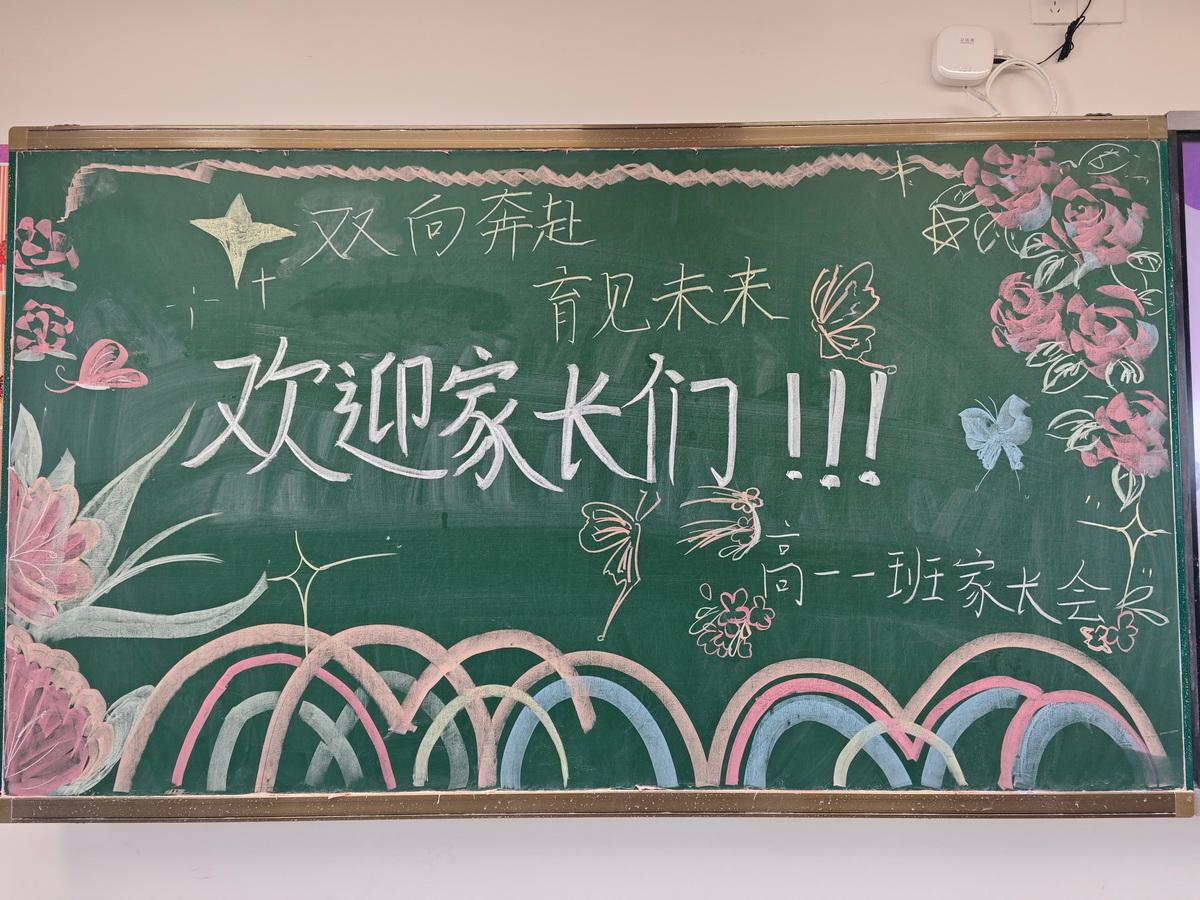 双向奔赴
育见未来
欢迎家长们!!!
高一一班家长会